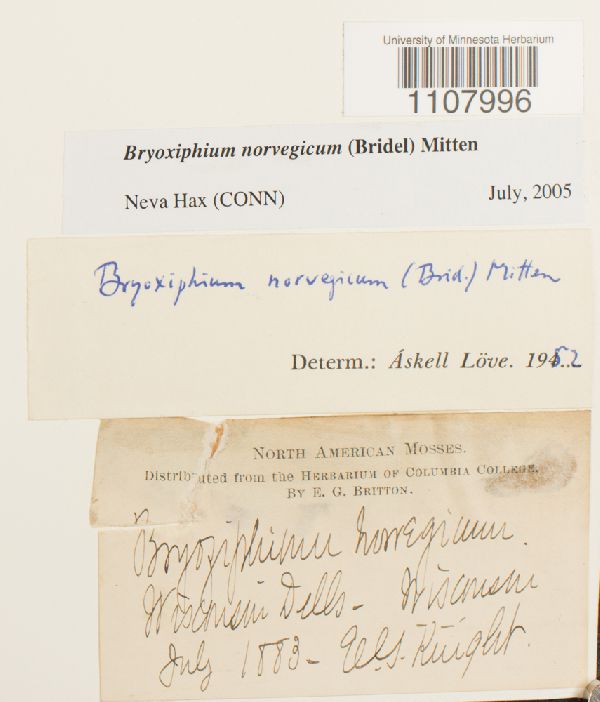 University of Minnesota Herbarium
1107996
Bryoxiphium norvegicum (Bridel) Mitten
Neva Hax (CONN) July, 2005
Bryoxiphium norvegicum (Brid.) Mitten
Determ.: Áskell Löve. 1952
NORTH AMERICAN MOSSES.
Distributed from the HERBARIUM OF COLUMBIA COLLEGE,
BY E. G. BRITTON.
Bryoziphium Norvegicum.
Wisconsin Dells - Wisconsin
July 1883 - Knight.